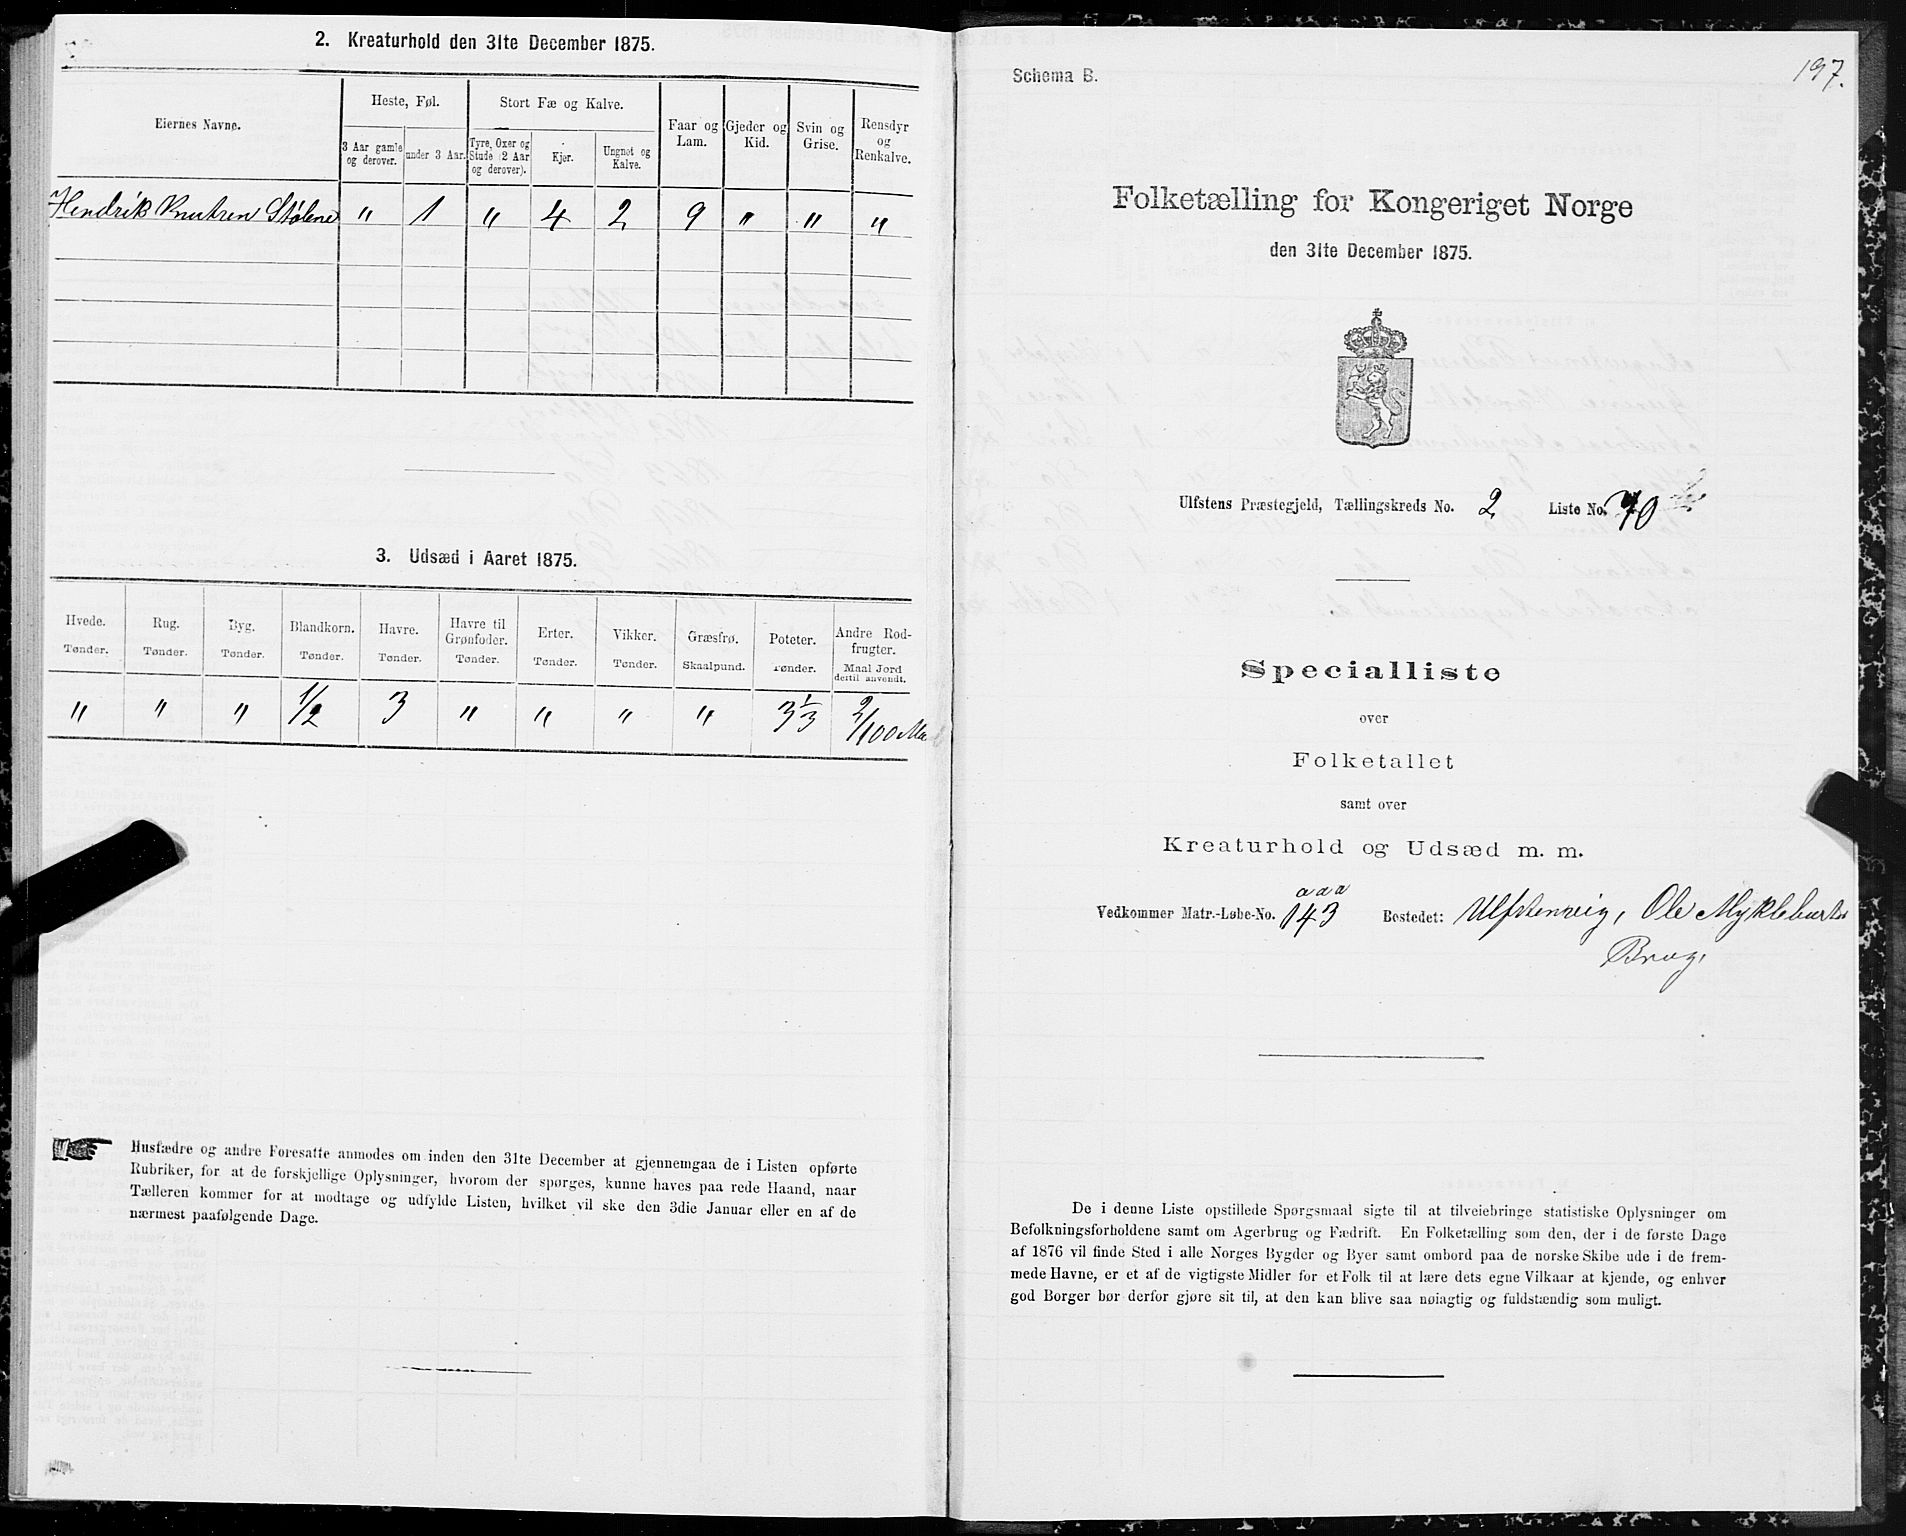 2. Kreaturhold den 31te December 1875.
Eiernes Navne.
Heste, Føl.
Stort Fæ og Kalve.
Faar og Lam.
Gjeder og Kid.
Svin og Grise.
Rensdyr og Renkalve.
3 Aar gamle og derover.
under 3 Aar.
Tyre, Oxer og Stude (2 Aar og derover).
Kjør.
Ungnøt og Kalve.
Hendrik Knutsen Stølene " 1 " 4 2 9 " " "
3. Udsæd i Aaret 1875.
Hvede. Rug. Byg. Blandkorn. Havre. Havre til Grønfoder. Erter. Vikker. Græsfrø. Poteter. Andre Rodfrugter.
Tønder. Tønder. Tønder. Tønder. Tønder. Tønder. Tønder. Tønder. Skaalpund. Tønder. Maal Jord dertil anvendt.
" " " 1/2 3 " " " " 3 1/3 2/100 Ma
Husfædre og andre Foresatte anmodes om inden den 31te December at gjennemgaa de i Listen opførte
Rubriker, for at de forskjellige Oplysninger, hvorom der spørges, kunne haves paa rede Haand, naar
Tælleren kommer for at modtage og udfylde Listen, hvilket vil ske den 3die Januar eller en af de
nærmest paafølgende Dage.
197.
Schema B.
Folketælling for Kongeriget Norge
den 31te December 1875.
Ulfstens Præstegjeld, Tællingskreds No. 2 Liste No. 70
Specialliste
over
Folketallet
samt over
Kreaturhold og Udsæd m. m.
aaa
Vedkommer Matr.-Løbe-No. 143 Bostedet: Ulfstenveig, Ole Myklebusts
Brug.
De i denne Liste opstillede Spørgsmaal sigte til at tilveiebringe statistiske Oplysninger om
Befolkningsforholdene samt om Agerbrug og Fædrift. En Folketælling som den, der i de første Dage
af 1876 vil finde Sted i alle Norges Bygder og Byer samt ombord paa de norske Skibe ude i de frem-
mede Havne, er et af de vigtigste Midler for et Folk til at lære dets egne Vilkaar at kjende, og enhver
god Borger bør derfor gjøre sit til, at den kan blive saa nøiagtig og fuldstændig som muligt.